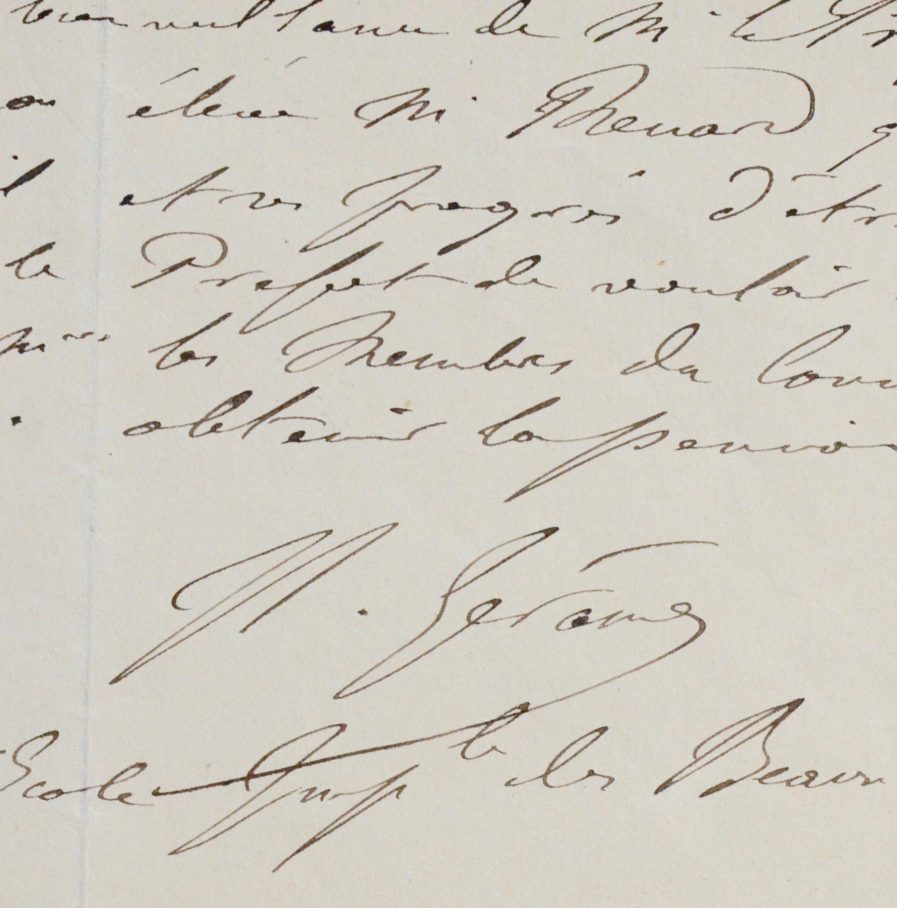 bienveillance de Mr le Pr
on élève Mr Thenard q
il et ses progrès d'êtr
le Prefet de vouloir
Mrs les Membres du Cons
. obtenir la pension
J L. Gérôme
Ecole Imple des Beaux